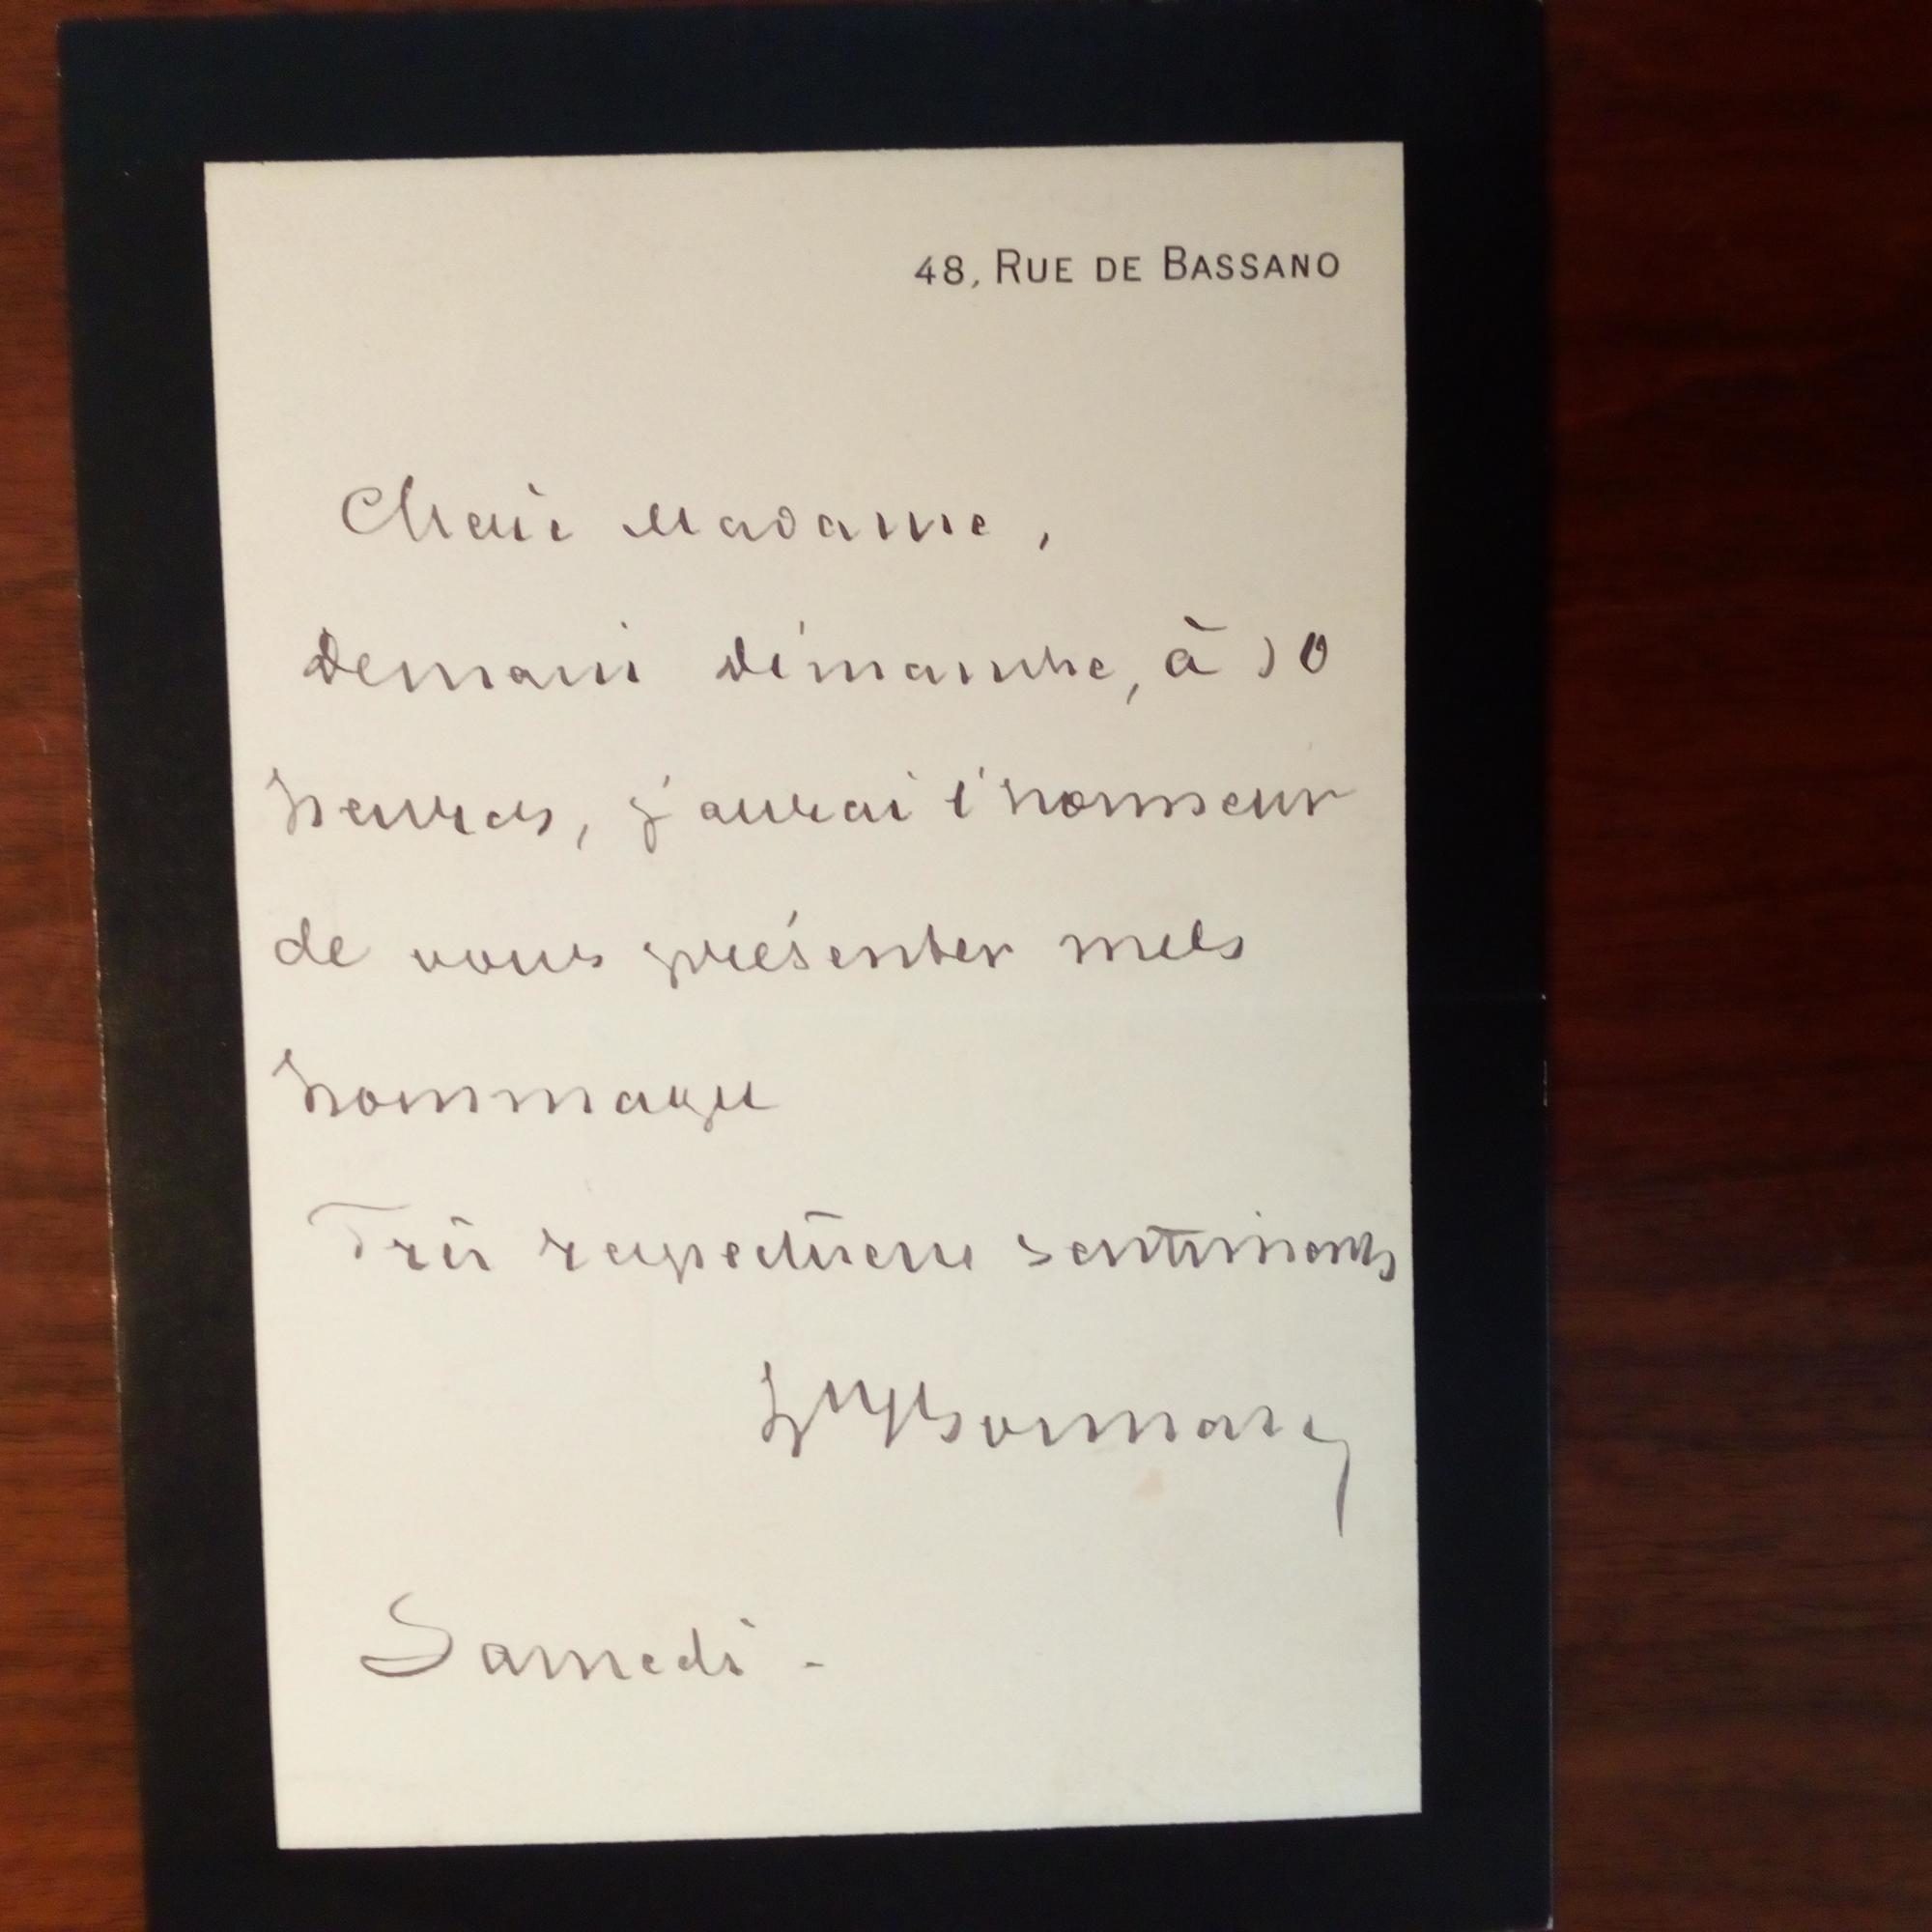 48, RUE DE BASSANO
Chère Madame,
Demain Dimanche, à 10
heures, j'aurai l'honneur
de vous présenter mes
hommages
Très respectueux sentiments
Samedi -